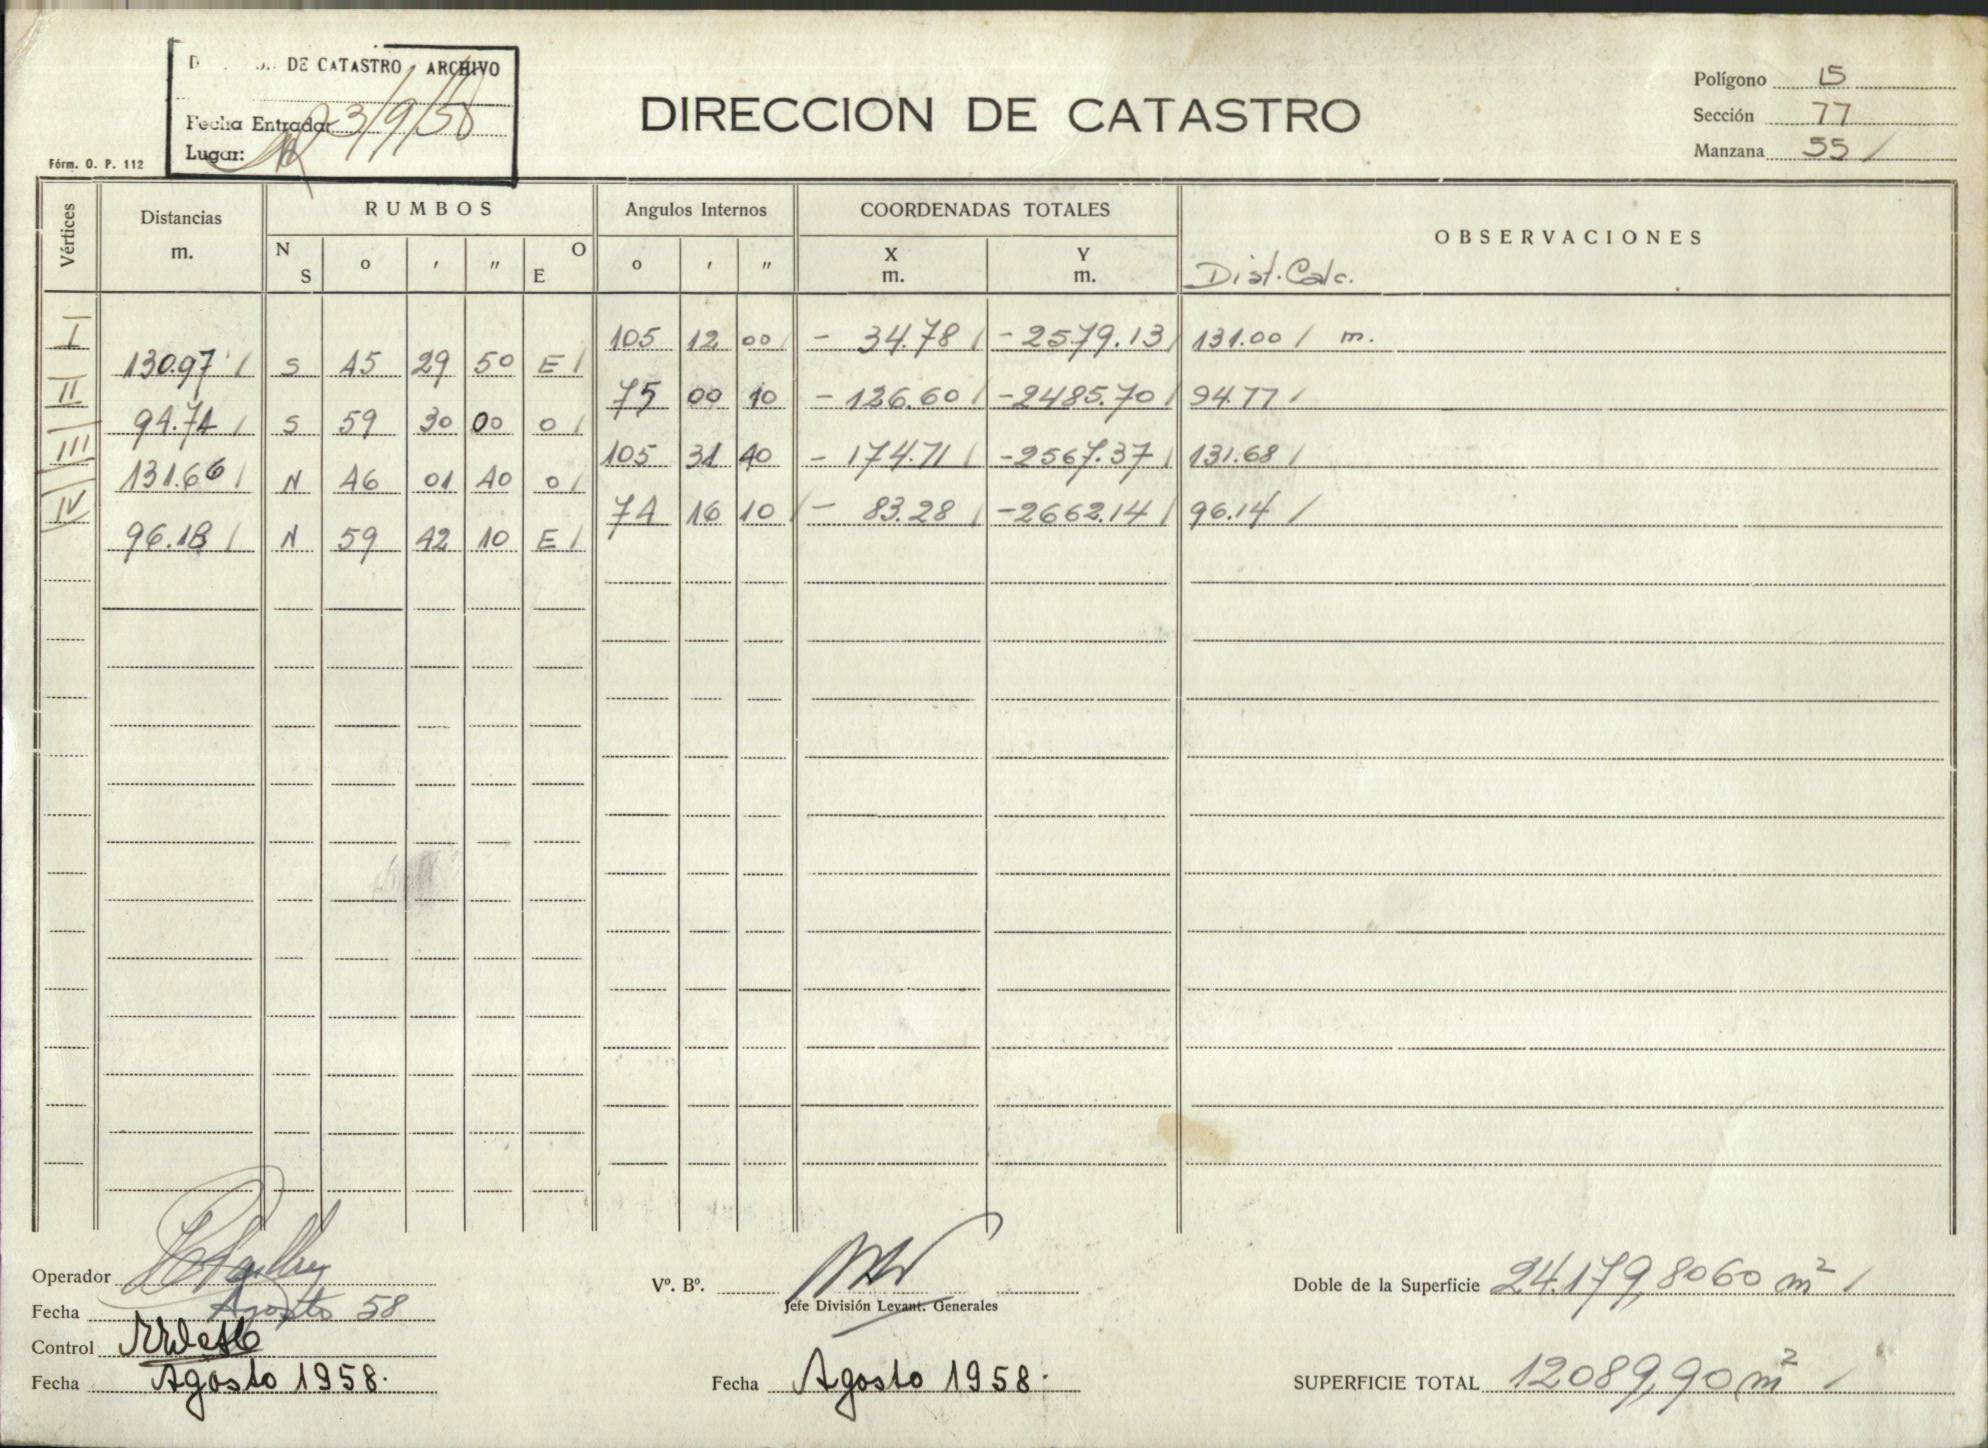 DE CATASTRO ARCHIVO
Fecha Entrada: 23/9/58
Lugar:
Fórm. O. P. 112
DIRECCION DE CATASTRO
Polígono 15
Sección 77
Manzana 55 /
Vértices Distancias m. RUMBOS N S o ' " O E Angulos Internos o ' " COORDENADAS TOTALES X m. Y m. OBSERVACIONES
Dist. Calc.
I 105 12 00 / - 34.78 / -2579.13 / 131.00 / m.
130.97 / S 45 29 50 E /
II 75 00 10 - 126.60 / -2485.70 / 94.77 /
94.74 / S 59 30 00 O /
III 105 31 40 - 174.71 / -2567.37 / 131.68 /
131.66 / N 46 01 40 O /
IV 74 16 10 / - 83.28 / -2662.14 / 96.14 /
96.18 / N 59 42 10 E /
Operador
Fecha Agosto 58
Control
Fecha Agosto 1958.
Vº. Bº.
Jefe División Levant. Generales
Fecha Agosto 1958.
Doble de la Superficie 24.179,8060 m² /
SUPERFICIE TOTAL 12089,90 m² /